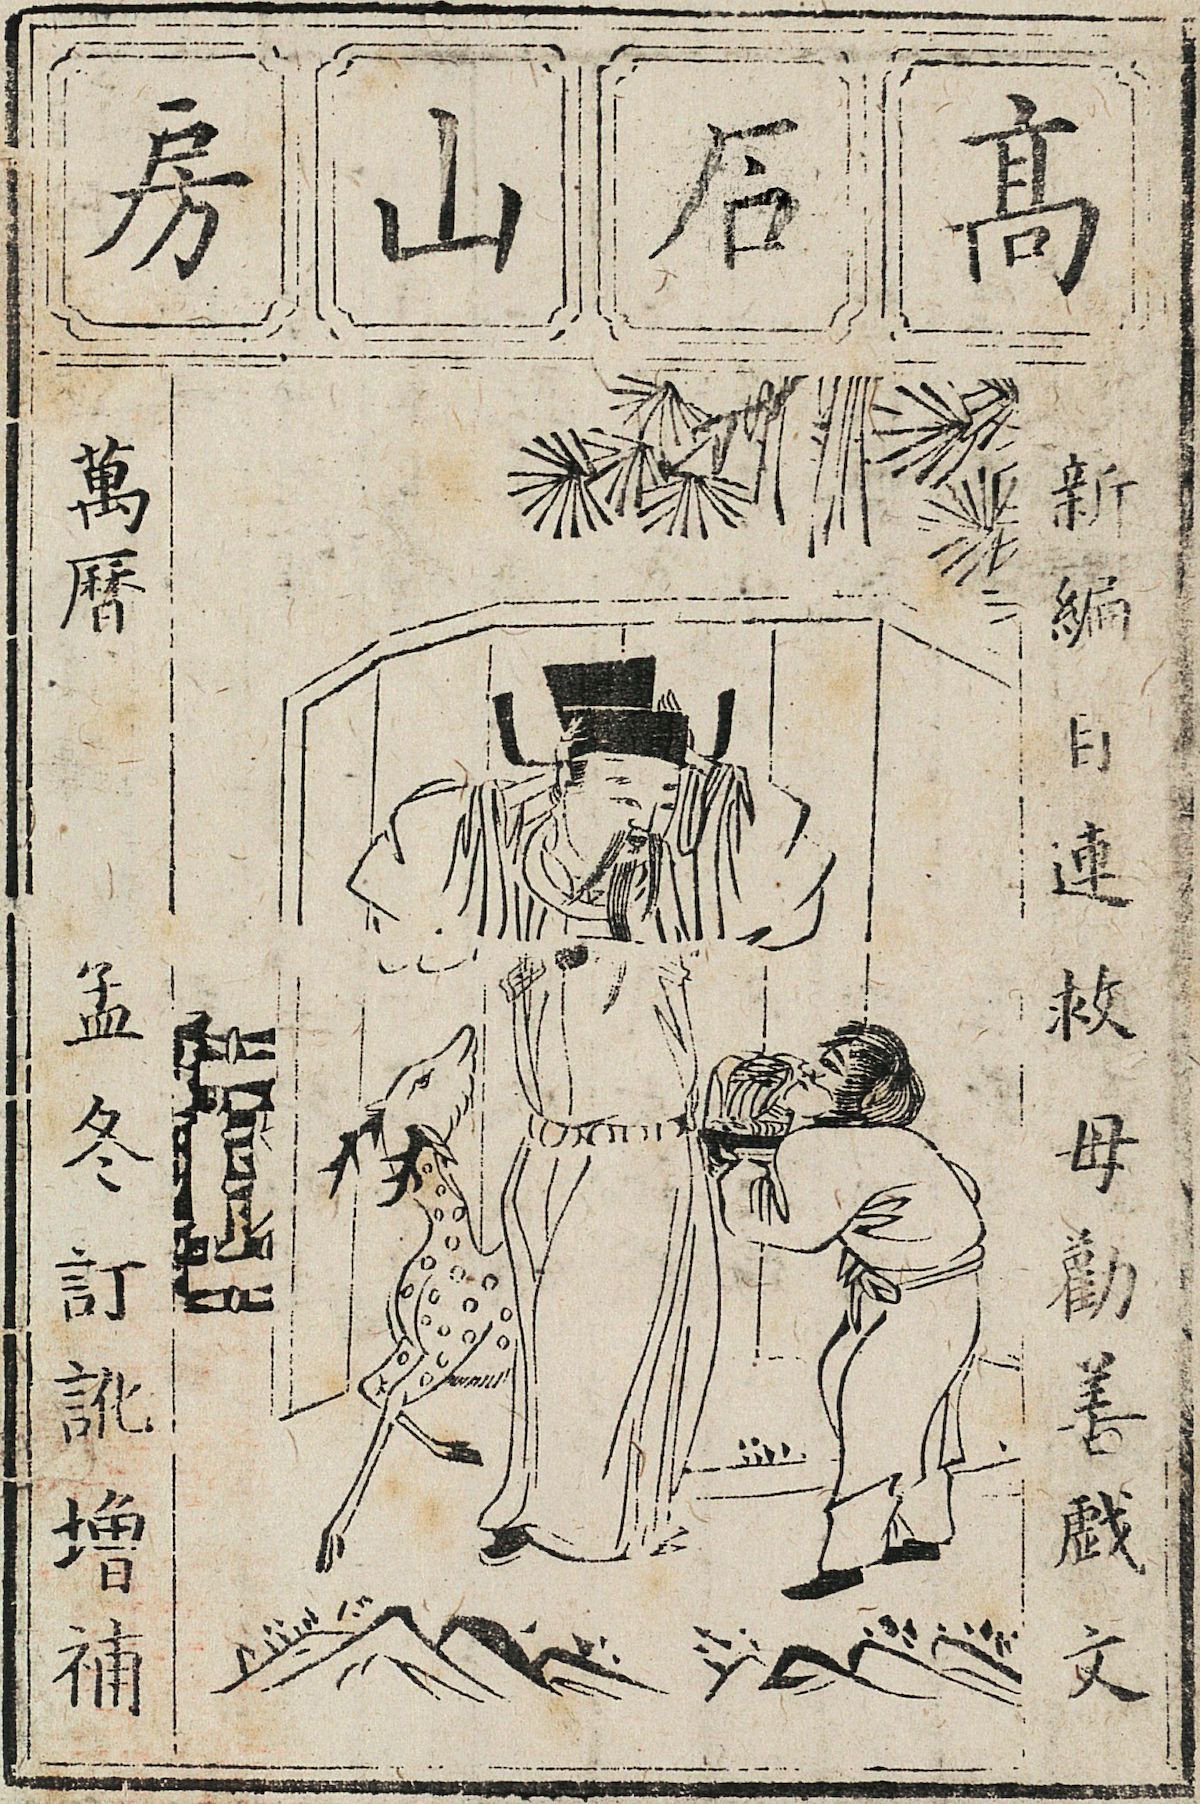 髙石山房
新編目連救母勸善戯文
萬曆 孟冬訂訛增補